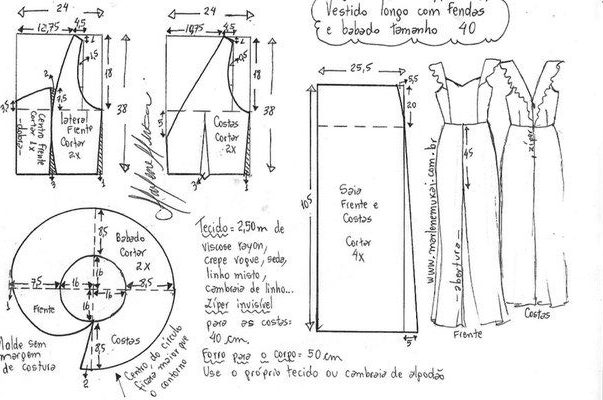 Vestido longo com Fendas
e babado tamanho 40
24
12,75
4,5
1
1,5
18
38
2
7,5
Centro Frente
Cortar 1x
-dobra-
lateral
Frente
Cortar
2x
1
24
10,75
4,5
1
0,5
18
38
5
Costas
Cortar
2x
3
1
25,5
5,5
20
105
Saia
Frente e
Costas
Cortar
4x
5
www.marlenemukai.com.br
45
abertura
Frente
zíper
Costas
Babado
Cortar
2X
8,5
7,5
16
16
16
16
8,5
8,5
1
1
2
Frente
Costas
Molde sem
margem
de costura
Centro do círculo
ficará maior que
o contorno
Tecido = 2,50m de
viscose rayon,
crepe voque, seda,
linho misto,
cambraia de linho...
zíper invisível
para as costas:
40 cm.
Forro para o corpo = 50 cm
Use o próprio tecido ou cambraia de algodão